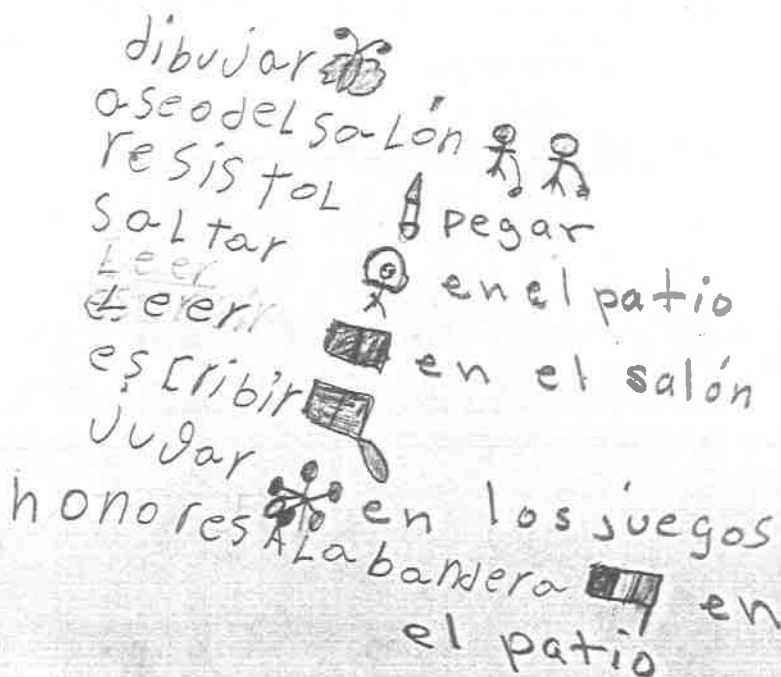 dibujar
aseo del salón
resistol pegar
saltar en el patio
Leer
Leer en el salón
escribir
jugar en los juegos
honores A La bandera en
el patio